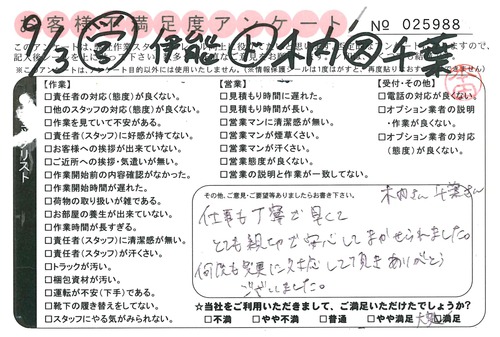 お客様不満足度アンケート
No 025988
9/3 ㊫ 伊能 木内 千葉
※このアンケートは、アンケート目的以外には使用いたしません。
【作業】
□責任者の対応(態度)が良くない。
□他のスタッフの対応(態度)が良くない。
□作業を見ていて不安がある。
□責任者(スタッフ)に好感が持てない。
□お客様への挨拶が出来ていない。
□ご近所への挨拶・気遣いが無い。
□作業開始前の内容確認がなかった。
□作業開始時間が遅れた。
□荷物の取り扱いが雑である。
□お部屋の養生が出来ていない。
□作業時間が長すぎる。
□責任者(スタッフ)に清潔感が無い。
□責任者(スタッフ)が汗くさい。
□トラックが汚い。
□梱包資材が汚い。
□運転が不安(下手)である。
□靴下の履き替えをしてない。
□スタッフにやる気がみられない。
【営業】
□見積もり時間に遅れた。
□見積もり時間が長い。
□営業マンに清潔感が無い。
□営業マンが煙草くさい。
□営業マンが汗くさい。
□営業態度が良くない。
□営業の説明と作業が一致してない。
【受付・その他】
□電話の対応が良くない。
□オプション業者の説明・作業が良くない。
□オプション業者の対応(態度)が良くない。
その他、ご意見・ご要望等ありましたらお書き下さい。
木内さん 千葉さん
仕事も丁寧で早くて
とても親切で安心してまかせられました。
何度も変更に対応して頂きありがとう
ございました。
☆当社をご利用いただきまして、ご満足いただけたでしょうか?
□不満 □やや不満 □普通 □やや満足 □満足